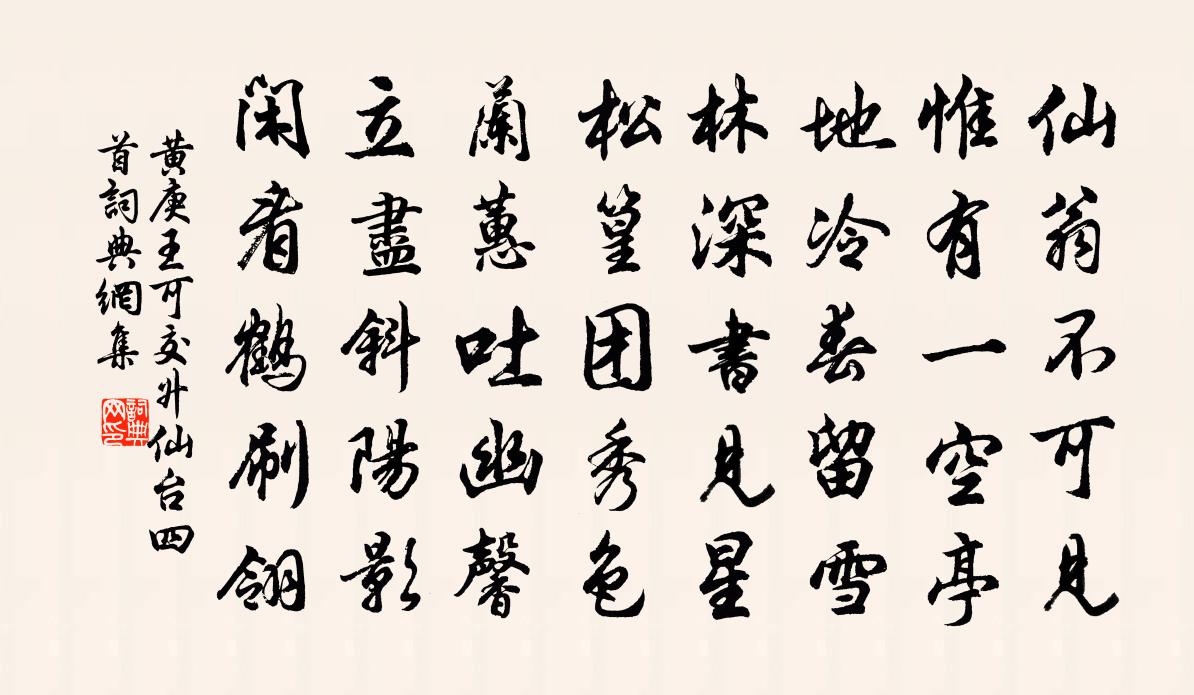 仙翁不可見
惟有一空亭
地冷春留雪
林深書見星
松篁团秀色
蘭蕙吐幽馨
立盡斜陽影
闲看鶴刷翎
黄庚王可交升仙台四
首詞典網集
詞典
网印